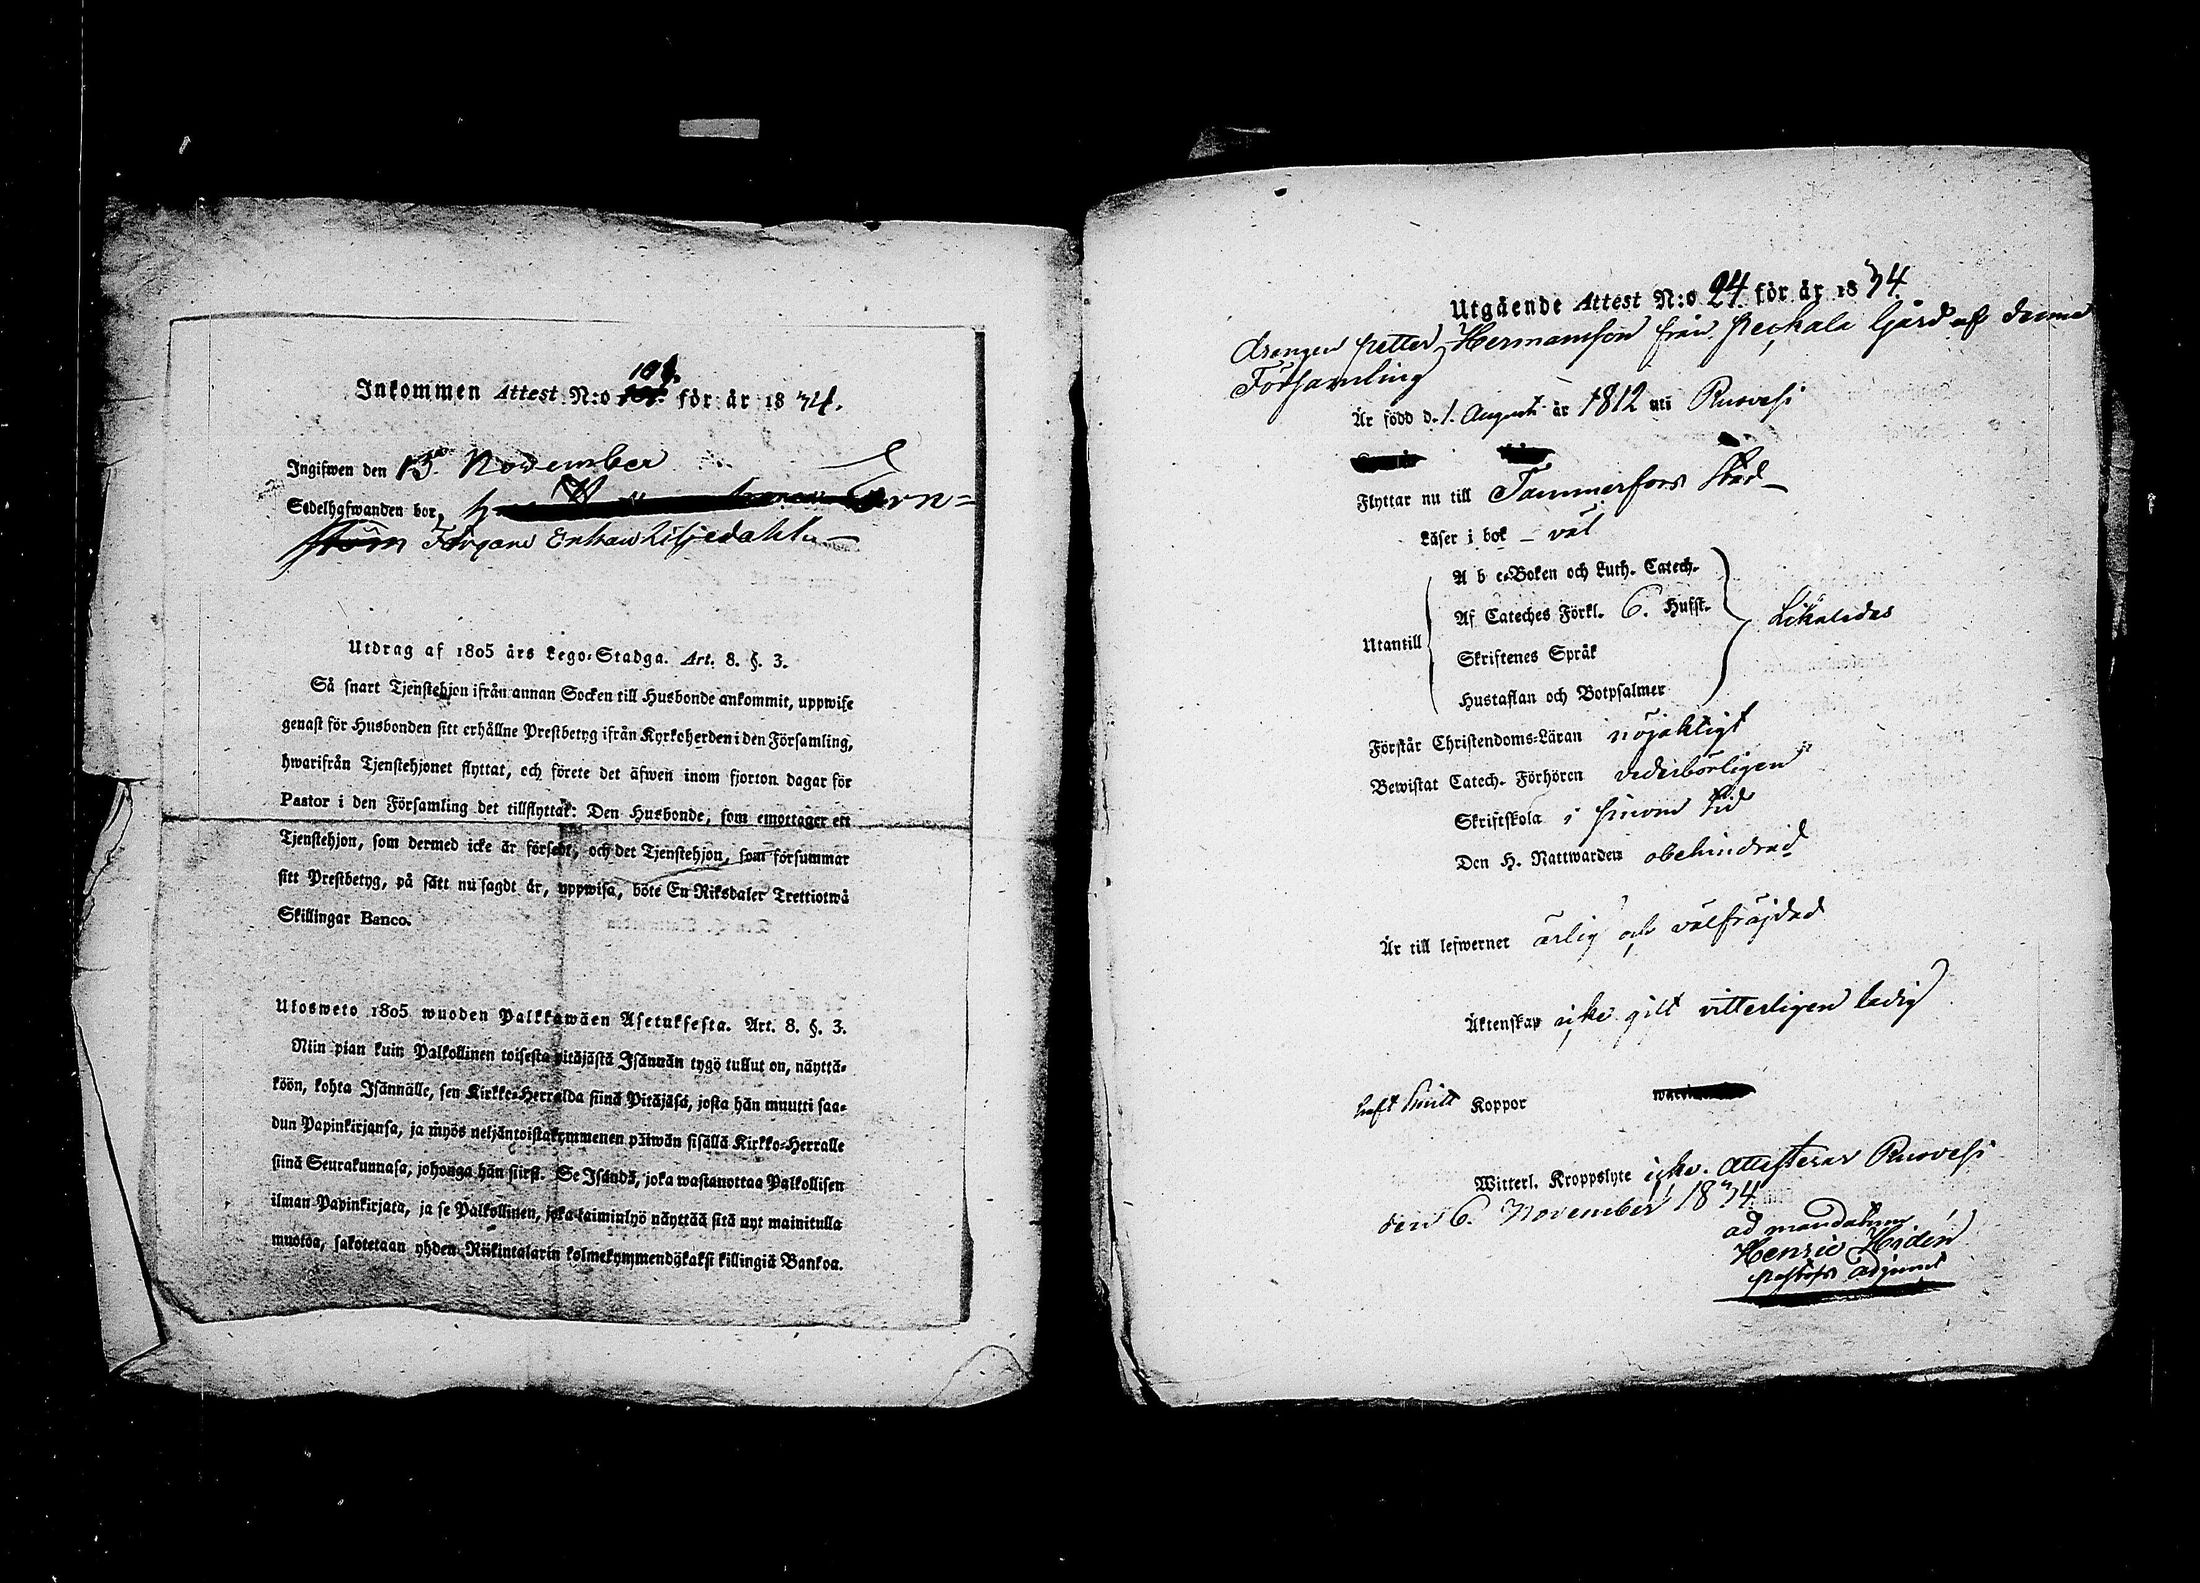 Inkommen Attest N:o 109. för år 1834.
Ingifwen den 13 November
Sedelhafwanden bor,
Enkan Liljedahl
Utdrag af 1805 års Lego-Stadga. Art. 8. §. 3.
Så snart Tjenstehjon ifrån annan Socken till Husbonde ankommit, uppwise
genast för Husbonden sitt erhållne Prestbetyg ifrån Kyrkoherden i den Församling,
hwarifrån Tjenstehjonet flyttat, och förete det äfwen inom fjorton dagar för
Pastor i den Församling det tillflyttat: Den Husbonde, som emottager ett
Tjenstehjon, som dermed icke är försedt, och det Tjenstehjon, som försummar
sitt Prestbetyg, på sätt nu sagdt är, uppwisa, böte En Riksdaler Trettiotwå
Skillingar Banco.
Ulosweto 1805 wuoden Palkkawäen Asetuksesta. Art. 8. §. 3.
Niin pian kuin Palkollinen toisesta pitäjästä Isännän tygö tullut on, näyttä-
köön, kohta Isännälle, sen Kirkko-Herralda siinä Pitäjäsä, josta hän muutti saa-
dun Papinkirjansa, ja myös neljäntoistakymmenen päiwän sisällä Kirkko-Herralle
siinä Seurakunnasa, johonga hän siirsi. Se Isändä, joka wastanottaa Palkollisen
ilman Papinkirjata, ja se Palkollinen, joka laiminlyö näyttää sitä nyt mainitulla
muotoa, sakotetaan yhden Riikintalarin kolmekymmendäkaksi killingiä Bankoa.
Utgående Attest N:o 24 för år 1834
Drängen Petter Hermansson från Peckala Gård af denna
Församling
Är född d. 1 Augusti år 1812 uti Ruovesi
Flyttar nu till Tammerfors Stad
Läser i bok väl
A b c-Boken och Luth. Catech.
Af Cateches Förkl. 6. Hufst.
Utantill
Likaledes
Skriftenes Språk
Hustaflan och Botpsalmer
Förstår Christendoms-Läran nöjaktigt
Bewistat Catech. Förhören vederbörligen
Skriftskola i sinom tid
Den H. Nattwarden obehindrad
Är till lefwernet ärlig och välfräjdad
Äktenskap icke gilt vitterligen ledig
haft Koppor
Witterl. Kroppslyte icke. Attesterar Ruovesi
den 6. November 1834.
ad mandatum
Henric Hidén
Pastors Adjunct